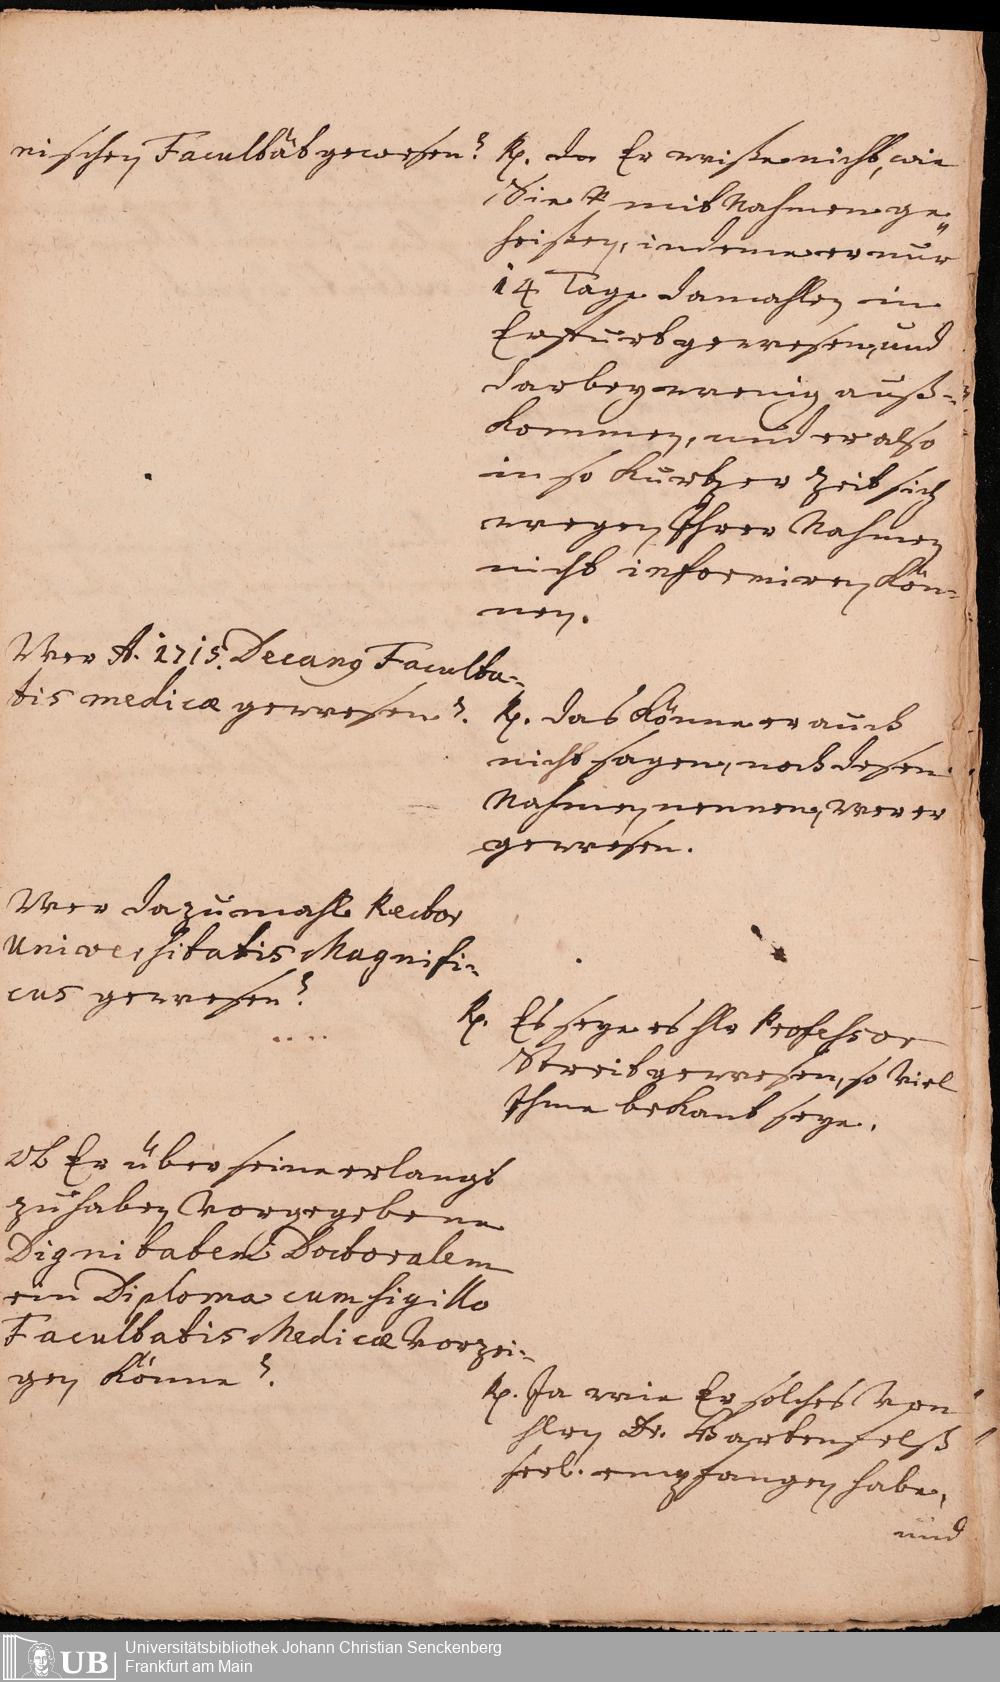 nischen Facultät gewesen?
Rp. da Er wiße nicht, wie
Sie mit Nahmen ge-
heißen, indeme er nur
14 Tage damahlen in
Erffurt gewesen, und
darbey wenig auß-
kommen, und er also
in so kurtzer Zeit sich
wegen Ihrer Nahmen
nicht informiren kön-
nen.
Wer A. 1715. Decang Faculta-
tis medicæ gewesen?
Rp. das könne er auch
nicht sagen, noch desen
Nahmen nennen, wer er
gewesen.
Wer dazumahl Rector
Universitatis Magnifi-
cus gewesen?
Rp. Es seye es Hr Professor
Streit gewesen, so viel
Ihme bekant seye.
Ob Er über seine erlangt
zu haben vorgegebene
Dignitatem Doctoralem
ein Diploma cum sigillo
Facultatis Medicæ vorzei-
gen könne?
Rp. Ja wie Er solches von
Hrn Dr.
seel. empfangen habe,
und
Universitätsbibliothek Johann Christian Senckenberg
Frankfurt am Main
UB